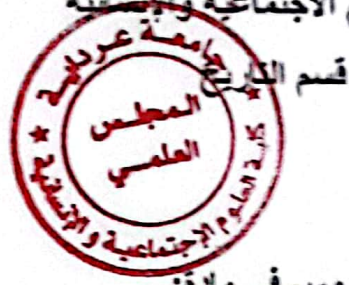 الاجتماعية والإنسانية
قسم التاريخ
جامعة غرداية
المجلس
العلمي
كلية العلوم الإجتماعية و الإنسانية
في مادة: